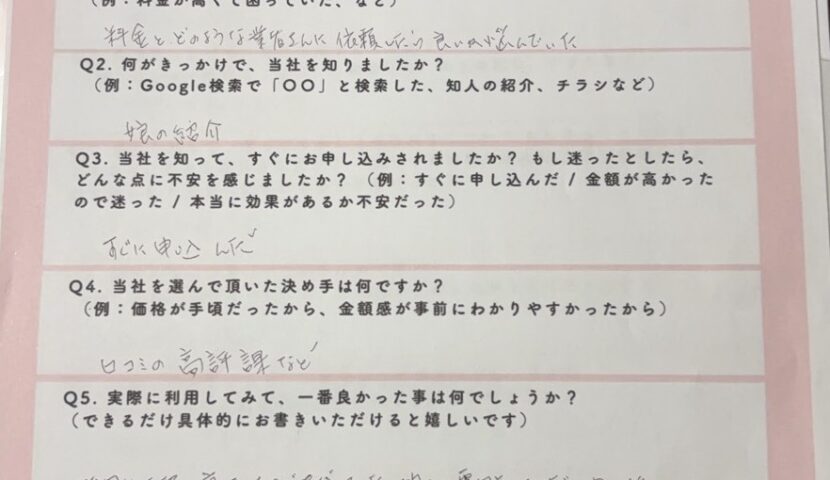 (例：料金が高くて困っていた、など)
料金とどのような業者さんに依頼したら良いか悩んでいた
Q2. 何がきっかけで、当社を知りましたか？
（例：Google検索で「〇〇」と検索した、知人の紹介、チラシなど）
娘の紹介
Q3. 当社を知って、すぐにお申し込みされましたか？ もし迷ったとしたら、
どんな点に不安を感じましたか？（例：すぐに申し込んだ / 金額が高かった
ので迷った / 本当に効果があるか不安だった）
すぐに申込んだ
Q4. 当社を選んで頂いた決め手は何ですか？
（例：価格が手頃だったから、金額感が事前にわかりやすかったから）
口コミの高評課など
Q5. 実際に利用してみて、一番良かった事は何でしょうか？
（できるだけ具体的にお書きいただけると嬉しいです）